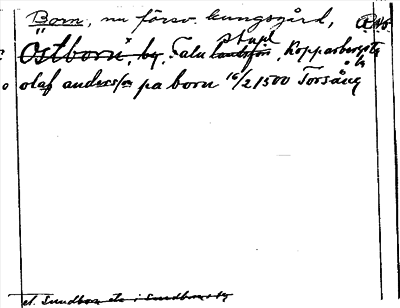 Born, nu försv. kungsgård,
Östborn, by, Falu landsförs. stupl, Kopparbergs
olaf anders/on pa born 16/2 1500 Torsång
el. Sundborn